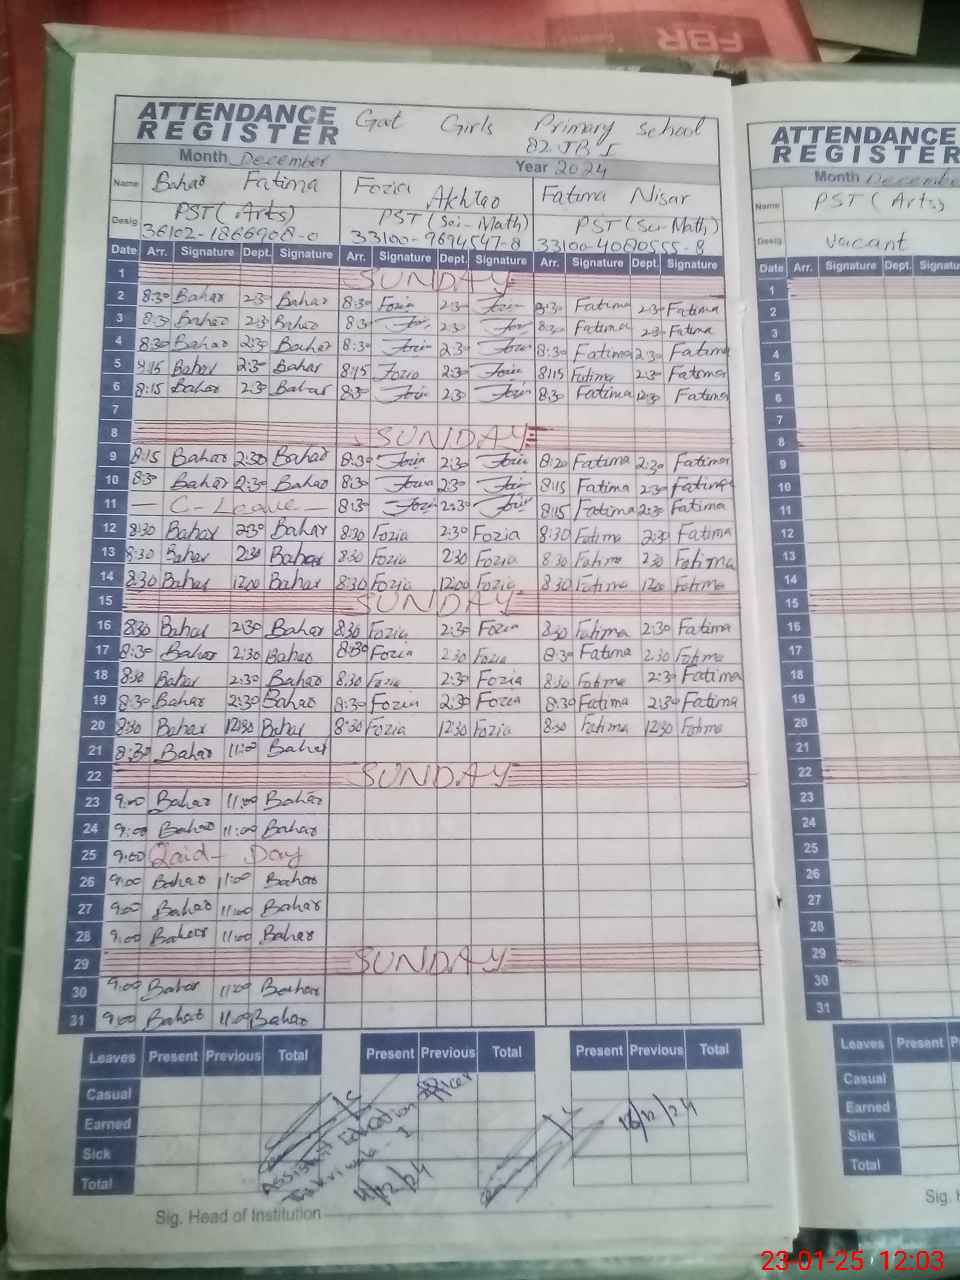 FBR
ATTENDANCE
REGISTER
Gat Girls Primary School
82 JB I
Month December Year 2024
Name Bahar Fatima Fozia Akhtar Fatima Nisar
Desig PST (Arts) PST (Sci-Math) PST (Sci-Math)
36102-1866908-0 33100-9694547-8 33100-4080555-8
Date Arr. Signature Dept. Signature Arr. Signature Dept. Signature Arr. Signature Dept. Signature
1 SUNDAY
2 8:30 Bahar 2:30 Bahar 8:30 Fozia 2:30 Fozia 8:30 Fatima 2:30 Fatima
3 8:30 Bahar 2:30 Bahar 8:30 Fozia 2:30 Fozia 8:30 Fatima 2:30 Fatima
4 8:30 Bahar 2:30 Bahar 8:30 Fozia 2:30 Fozia 8:30 Fatima 2:30 Fatima
5 8:15 Bahar 2:30 Bahar 8:15 Fozia 2:30 Fozia 8:15 Fatima 2:30 Fatima
6 8:15 Bahar 2:30 Bahar 8:30 Fozia 2:30 Fozia 8:30 Fatima 12:30 Fatima
7
8 SUNDAY
9 8:15 Bahar 2:30 Bahar 8:30 Fozia 2:30 Fozia 8:20 Fatima 2:30 Fatima
10 8:30 Bahar 2:30 Bahar 8:30 Fozia 2:30 Fozia 8:15 Fatima 2:30 Fatima
11 — C - Leave — 8:30 Fozia 2:30 Fozia 8:15 Fatima 2:30 Fatima
12 8:30 Bahar 2:30 Bahar 8:30 Fozia 2:30 Fozia 8:30 Fatima 2:30 Fatima
13 8:30 Bahar 2:30 Bahar 8:30 Fozia 2:30 Fozia 8:30 Fatima 2:30 Fatima
14 8:30 Bahar 12:00 Bahar 8:30 Fozia 12:00 Fozia 8:30 Fatima 12:00 Fatima
15 SUNDAY
16 8:30 Bahar 2:30 Bahar 8:30 Fozia 2:30 Fozia 8:30 Fatima 2:30 Fatima
17 8:30 Bahar 2:30 Bahar 8:30 Fozia 2:30 Fozia 8:30 Fatima 2:30 Fatima
18 8:30 Bahar 2:30 Bahar 8:30 Fozia 2:30 Fozia 8:30 Fatima 2:30 Fatima
19 8:30 Bahar 2:30 Bahar 8:30 Fozia 2:30 Fozia 8:30 Fatima 2:30 Fatima
20 8:30 Bahar 12:30 Bahar 8:30 Fozia 12:30 Fozia 8:30 Fatima 12:30 Fatima
21 8:30 Bahar 11:00 Bahar
22 SUNDAY
23 9:00 Bahar 11:00 Bahar
24 9:00 Bahar 11:00 Bahar
25 9:00 Qaid - Day
26 9:00 Bahar 11:00 Bahar
27 9:00 Bahar 11:00 Bahar
28 9:00 Bahar 11:00 Bahar
29 SUNDAY
30 9:00 Bahar 11:00 Bahar
31 9:00 Bahar 11:00 Bahar
Leaves Present Previous Total Present Previous Total Present Previous Total
Casual
Earned
Sick
Total
Assistant Education Officer
18/12/24
Sig. Head of Institution
ATTENDANCE
REGISTER
Month December
Name PST (Arts)
Desig vacant
Date Arr. Signature Dept.
1
2
3
4
5
6
7
8
9
10
11
12
13
14
15
16
17
18
19
20
21
22
23
24
25
26
27
28
29
30
31
Leaves Present
Casual
Earned
Sick
Total
Sig.
23-01-25 12:03